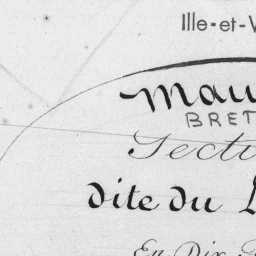 Ille-et-V
Mau
BRET
Secti
dite du L
En Dix